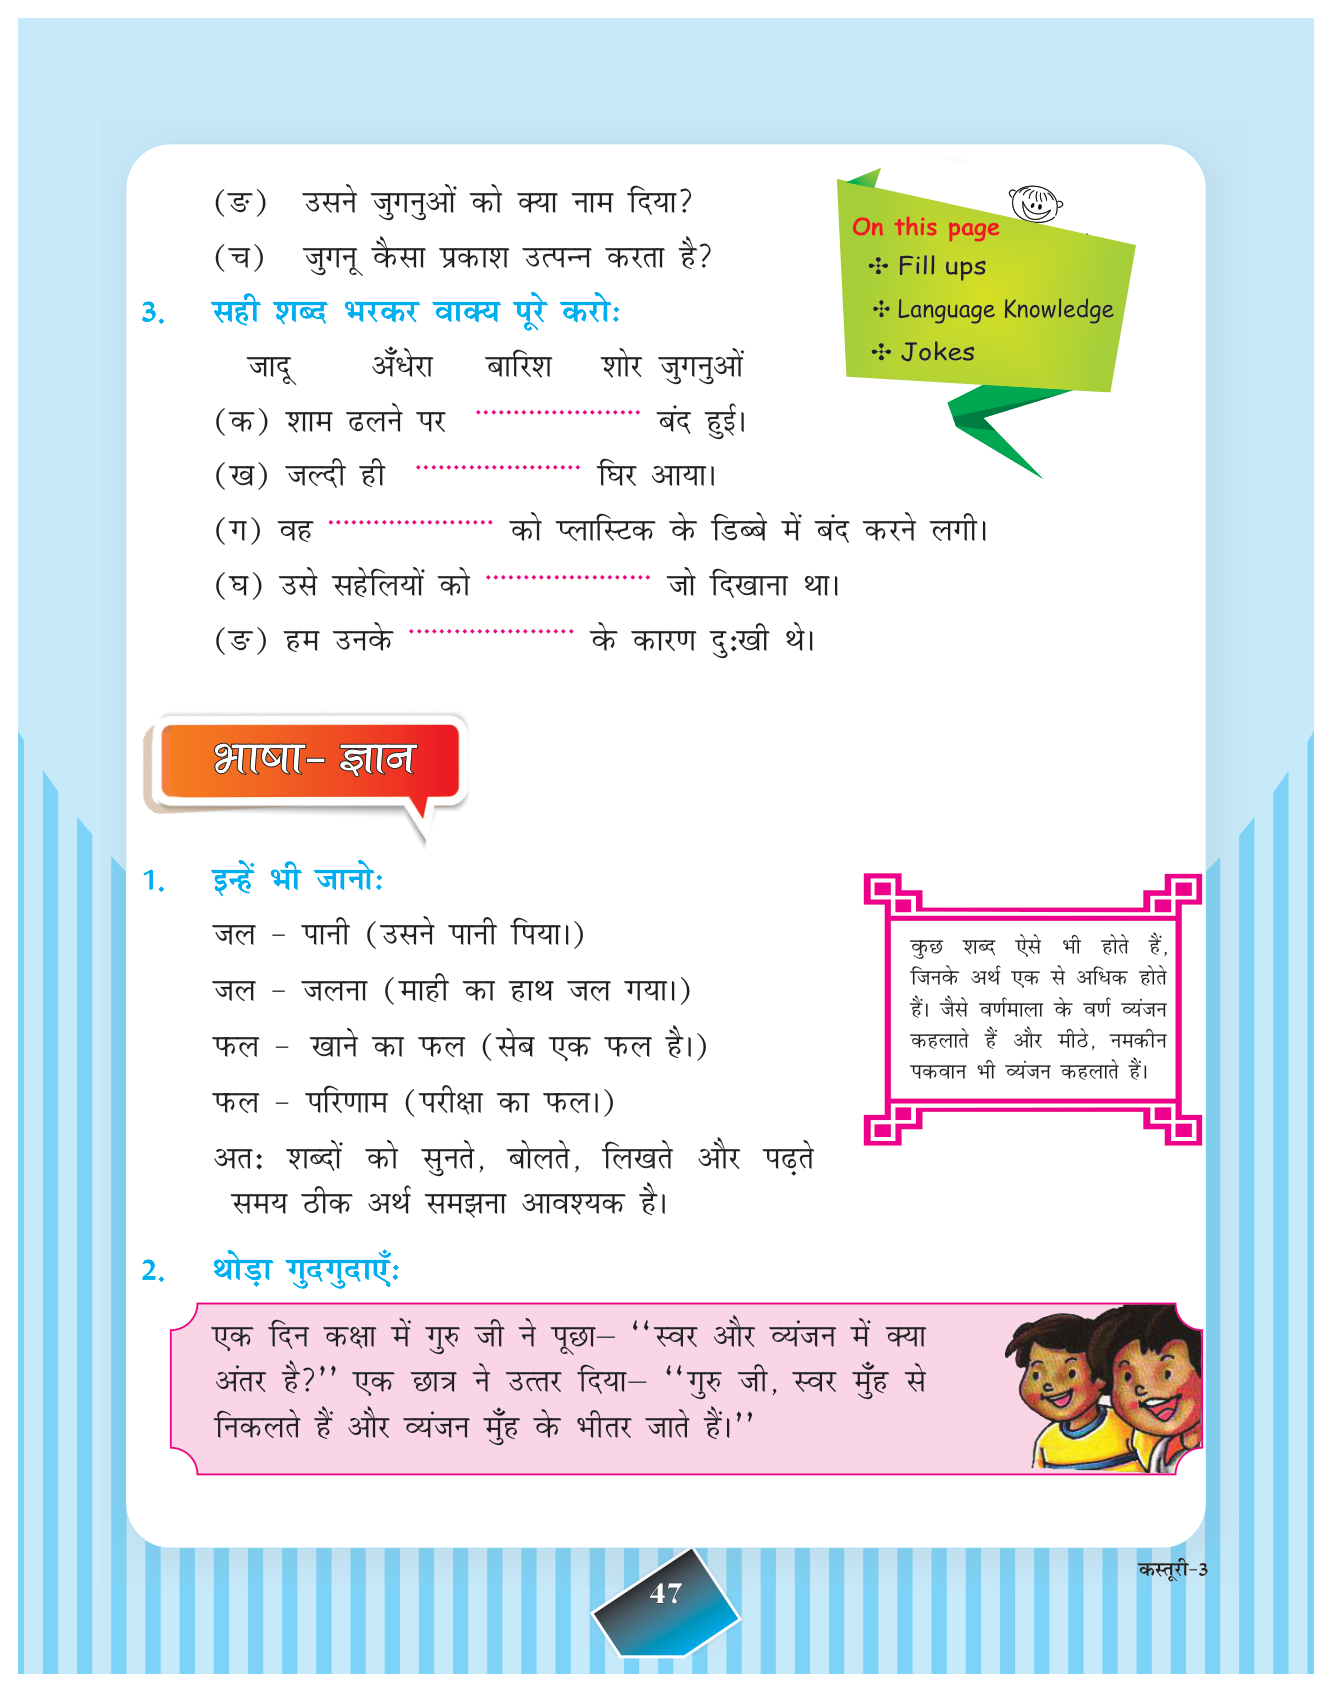 (ङ) उसने जुगनुओं को क्या नाम दिया?
(च) जुगनू कैसा प्रकाश उत्पन्न करता है?
On this page
✣ Fill ups
✣ Language Knowledge
✣ Jokes
3. सही शब्द भरकर वाक्य पूरे करो:
जादू अँधेरा बारिश शोर जुगनुओं
(क) शाम ढलने पर ...................... बंद हुई।
(ख) जल्दी ही ...................... घिर आया।
(ग) वह ...................... को प्लास्टिक के डिब्बे में बंद करने लगी।
(घ) उसे सहेलियों को ...................... जो दिखाना था।
(ङ) हम उनके ...................... के कारण दुःखी थे।
भाषा- ज्ञान
1. इन्हें भी जानो:
जल – पानी (उसने पानी पिया।)
जल – जलना (माही का हाथ जल गया।)
फल – खाने का फल (सेब एक फल है।)
फल – परिणाम (परीक्षा का फल।)
अतः शब्दों को सुनते, बोलते, लिखते और पढ़ते
समय ठीक अर्थ समझना आवश्यक है।
कुछ शब्द ऐसे भी होते हैं,
जिनके अर्थ एक से अधिक होते
हैं। जैसे वर्णमाला के वर्ण व्यंजन
कहलाते हैं और मीठे, नमकीन
पकवान भी व्यंजन कहलाते हैं।
2. थोड़ा गुदगुदाएँ:
एक दिन कक्षा में गुरु जी ने पूछा– ‘‘स्वर और व्यंजन में क्या
अंतर है?’’ एक छात्र ने उत्तर दिया– ‘‘गुरु जी, स्वर मुँह से
निकलते हैं और व्यंजन मुँह के भीतर जाते हैं।’’
कस्तूरी-3
47